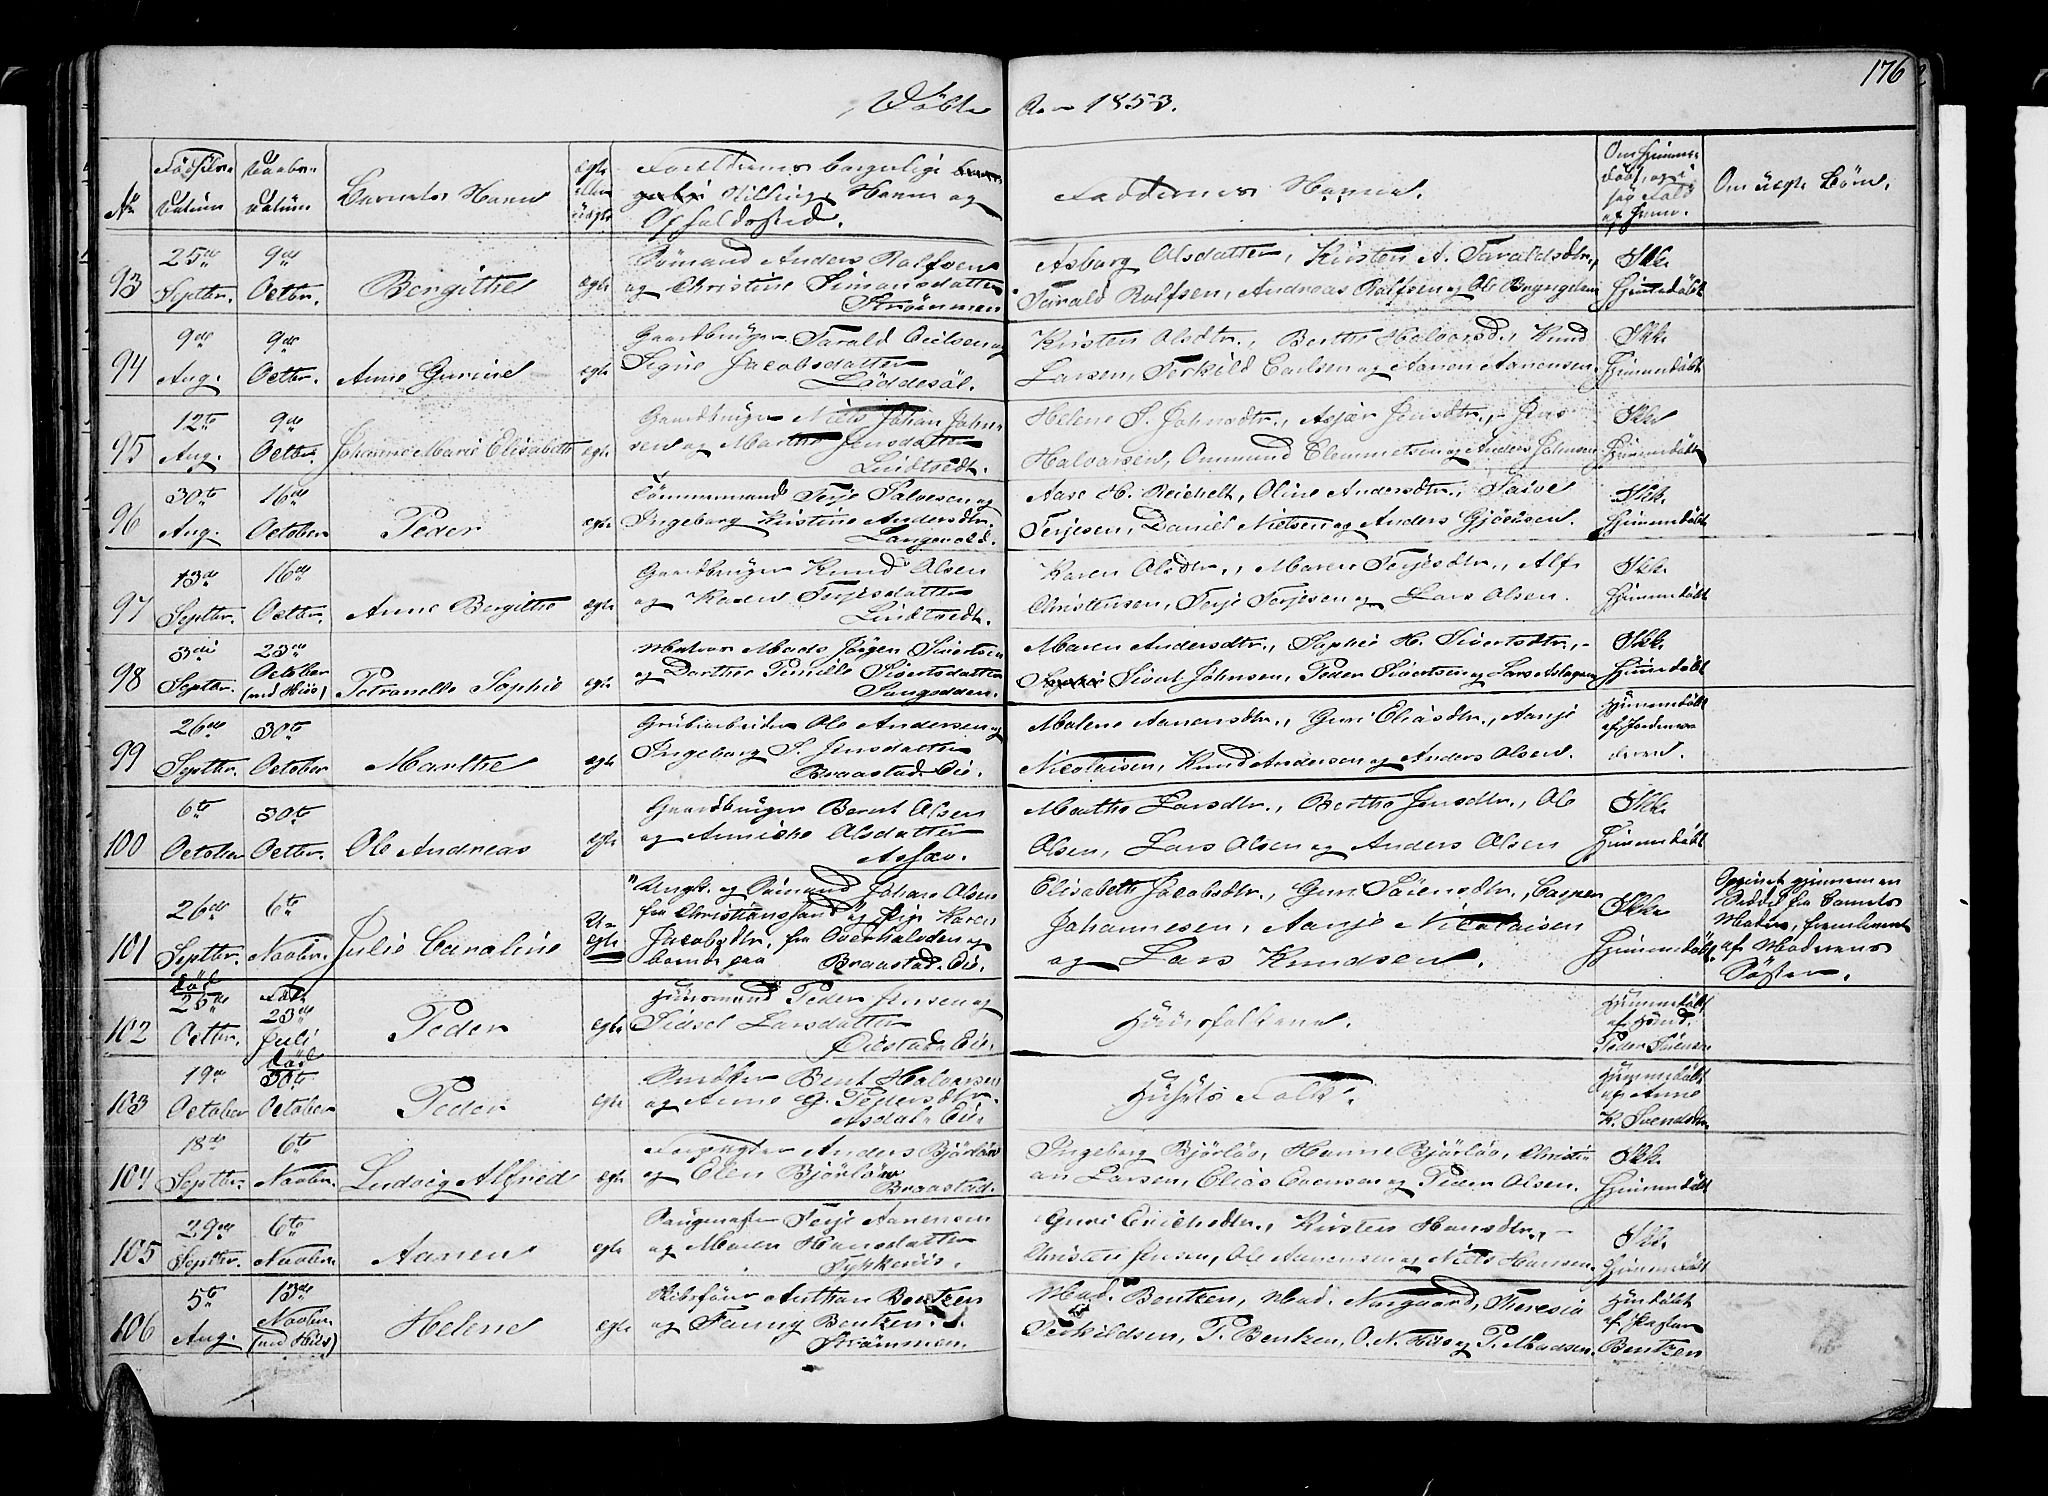 176
Döbte
Aar 1853.
No
Födsels-
Datum
Daabs-
datum
Barnets Navn
ægte
eller
uægte
Forældrenes borgerlige
Stilling, Navn og
Opholdssted.
Faddernes Navne.
Om hjemme-
döbt, og i
saa Fald
af hvem.
Om uægte Börn.
93
25de
Septbr.
9de
Octbr.
Bergithe
ægte
Sömand Anders Rolfsen
og Christine Simonsdatter
Strömmen
Asborg Olsdatter, Kirsten A. Taraldsdtr.,
Tarald Rolfsen, Andreas Rolfsen og Ole Bryngelsen
Ikke
Hjemmedöbt
94
9de
Aug.
9de
Octbr.
Anne Gurine
ægte
Gaardbruger Tarald Oielsen og
Signe Jacobsdatter
Löddesöl.
Kirsten Olsdtr., Berthe Halvorsd., Knud
Larsen, Terkild Carlsen og Aanon Aanonsen.
Ikke
Hjemmedöbt
95
12te
Aug.
9de
Octbr.
Johanne Marie Elisabeth
ægte
Gaardbruger Niels Johan John-
sen og Marthe Jensdatter
Lindtvedt.
Helene S. Johnsdtr., Asjær Jensdtr., Jens
Halvorsen, Ommund Clemmetsen og Anders Johnsen
Ikke
Hjemmedöbt
96
30te
Aug.
16de
October
Peder
ægte
Tömmermand Terje Salvesen og
Ingeborg Kirstine Andersdtr.
Langevold.
Aase H. Reichelt, Oline Andersdtr., Saive
Terjesen, Daniel Nielsen og Anders Gjöeusen.
Ikke
Hjemmedöbt
97
13de
Septbr.
16de
Octbr.
Anne Bergithe
ægte
Gaardbruger Knud Olsen
og Karen Terjesdatter
Lindtvedt.
Karen Olsdtr., Maren Terjesdtr., Alf
Christensen, Terje Terjesen og Lars Olsen.
Ikke
Hjemmedöbt
98
3die
Septbr.
23de
October
(ved Hiis)
Petronelle Sophie
ægte
Matros Mads Jörgen Sivertsen
og Dorthea Pernille Sivertsdatter
Sangodden.
Maren Andersdtr., Sophie H. Sivertsdtr.,
Sivert Johnsen, Peder Sivertsen og Lars Aslagsen
Ikke
Hjemmedöbt
99
26de
Septbr.
30te
October
Marthe
ægte
Grubearbeider Ole Andersen og
Ingeborg S. Jensdatter
Braastad-Eie.
Malene Aanensdtr., Guri Eliasdtr., Aanje
Nicolaisen, Knud Andersen og Anders Olsen.
Hjemmedöbt
af Jordemo-
deren.
100
6te
October
30te
Octbr.
Ole Andreas
ægte
Gaardbruger Bernt Olsen
og Anniche Olsdatter
Asjær.
Marthe Larsdtr., Berthe Jensdtr., Ole
Olsen, Lars Olsen og Anders Olsen
Ikke
Hjemmedöbt
101
26de
Septbr.
6te
Novbr.
Julie Caroline
U-
ægte
"Ungk. og Sömand Johan Olsen
fra Christianssand" og Pige Karen
Jacobsdtr. fra Overhalvden og
boende paa Braastad-Eie.
Elisabeth Jacobsdtr., Guri Sörensdtr., Casper
Johannesen, Aanje Nicolaisen
og Lars Knudsen.
Ikke
Hjemmedöbt
Opgivet gjennem en
Seddel fra Barnets
Moder, fremleveret
af Moderens
Söster.
102
död
25de
Octbr.
Föd
23de
Juli
Peder
ægte
Huusmand Peder Jensen og
Sidsel Larsdatter
Öiestad-Eie.
Huusfolkene.
Hjemmedöbt
af Hmd.
Peder Svensen
103
19de
October
död
30te
October
Peder
ægte
Snedker Bent Halvorsen
og Anne G. Pedersdtr.
Asdal-Eie.
Husets Folk.
Hjemmedöbt
af Anne
K. Svendsdtr.
104
18de
Septbr.
6te
Novbr.
Ludvig Alfred
ægte
Forpagter Anders Björlöw
og Elen Björlöw
Braastad.
Ingeborg Björlöw, Hanne Björlöw, Christi-
an Larsen, Elias Evensen og Peder Olsen.
Ikke
Hjemmedöbt
105
29de
Septbr.
6te
Novbr.
Aanen
ægte
Saugmester Terje Aanensen
og Maren Hansdatter
Rykkeniis.
Guri Erichsdtr., Kirsten Hansdtr.,
Christen Jensen, Ole Aanensen og Niels Hansen.
Ikke
Hjemmedöbt
106
5te
Aug.
13de
Novbr.
(ved Hiis)
Helene
ægte
Skibsförer Anthon Bentzen
og Fanny Bentzen.
Strömmen.
Mad. Bentzen, Mad. Norgaard, Theresia
Terkildsen, P. Bentzen, O. N. Hiis og P. Madsen.
Hjemdöbt
af Pastor
Bentzen